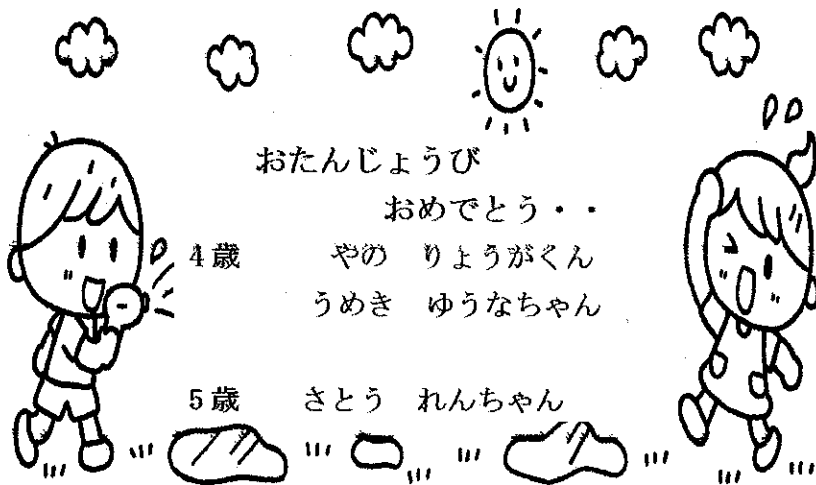 おたんじょうび
おめでとう・・
4歳 やの りょうがくん
うめき ゆうなちゃん
5歳 さとう れんちゃん